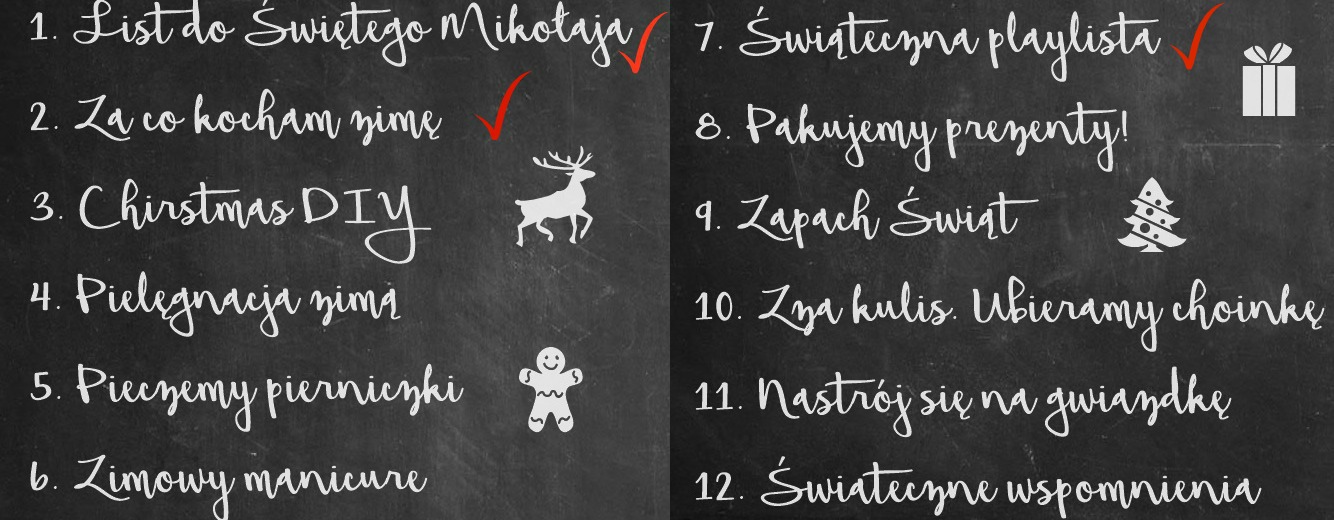 1. List do Świętego Mikołaja
2. Za co kocham zimę
3. Chirstmas DIY
4. Pielęgnacja zimą
5. Pieczemy pierniczki
6. Zimowy manicure
7. Świąteczna playlista
8. Pakujemy prezenty!
9. Zapach Świąt
10. Zza kulis. Ubieramy choinkę
11. Nastrój się na gwiazdkę
12. Świateczne wspomnienia